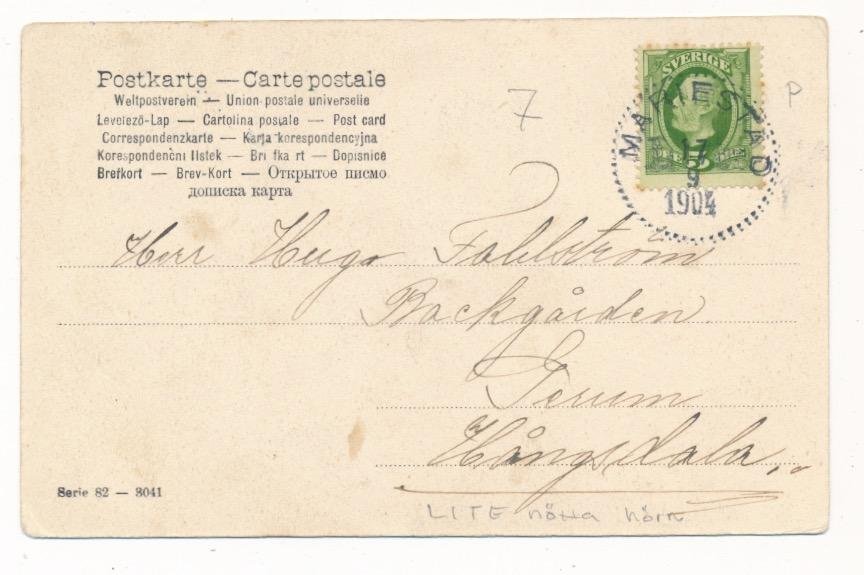 Postkarte — Carte postale
Weltpostverein — Union postale universelle
Levelező-Lap — Cartolina postale — Post card
Correspondenzkarte — Karta korespondencyjna
Korespondenční lístek — Bri fka rt — Dopisnice
Brefkort — Brev-Kort — Открытое писмо
дописка карта
7
P
SVERIGE
FEM 5 ÖRE
MARIESTAD
17
9
1904
Herr Hugo Fahlström
Backgården
Serum
Hångsdala
Serie 82 — 3041
LITE nötta hörn